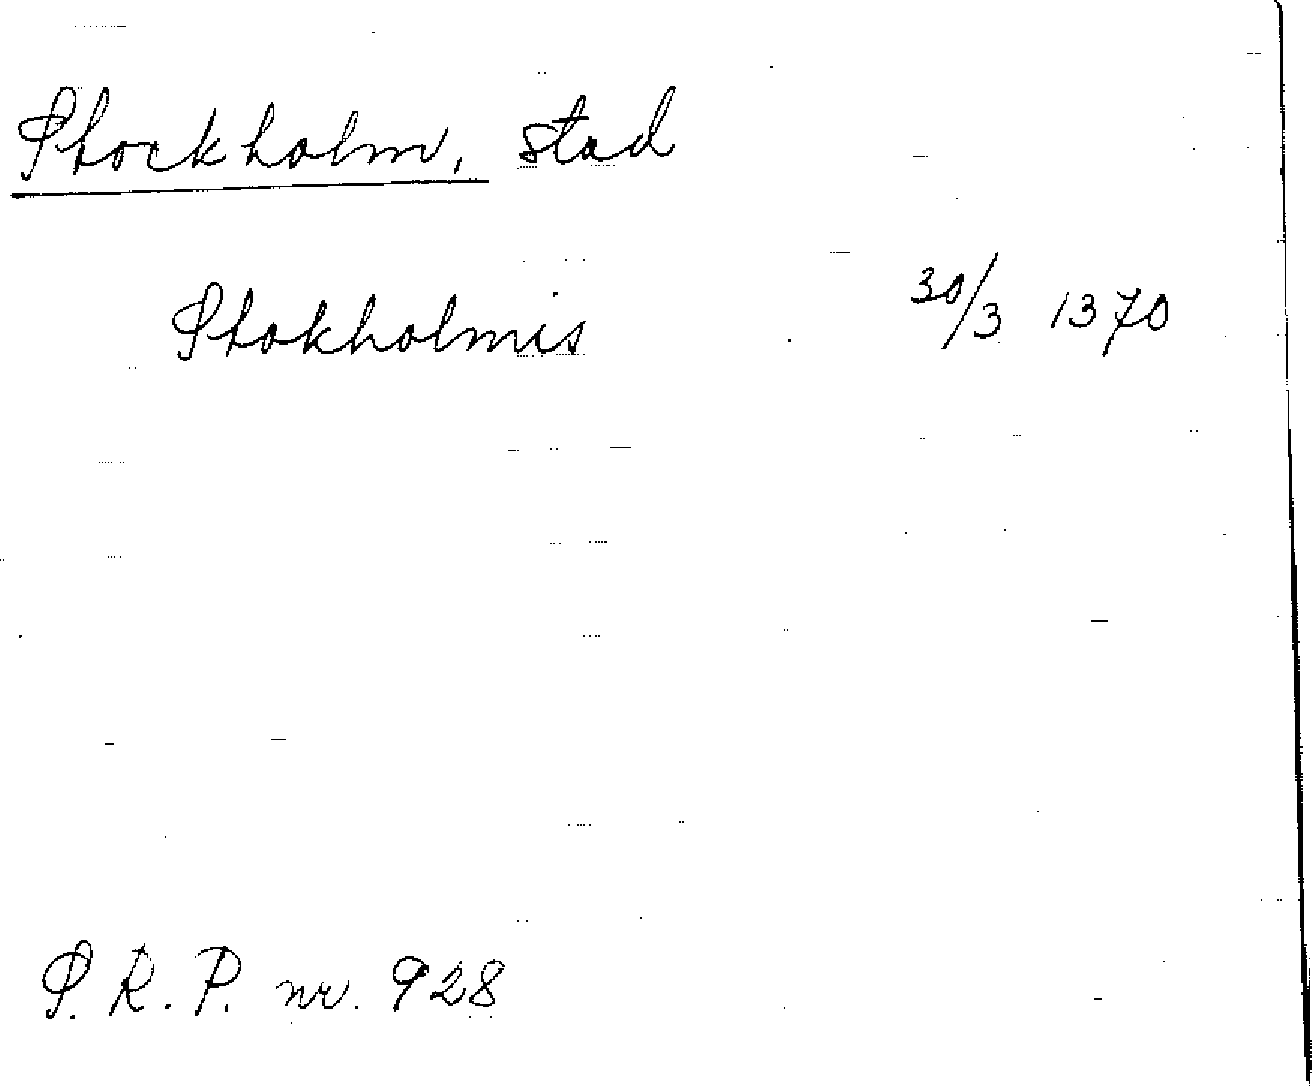 Stockholm, stad
Stokholmis 30/3 1370
S. R. P. nr. 928